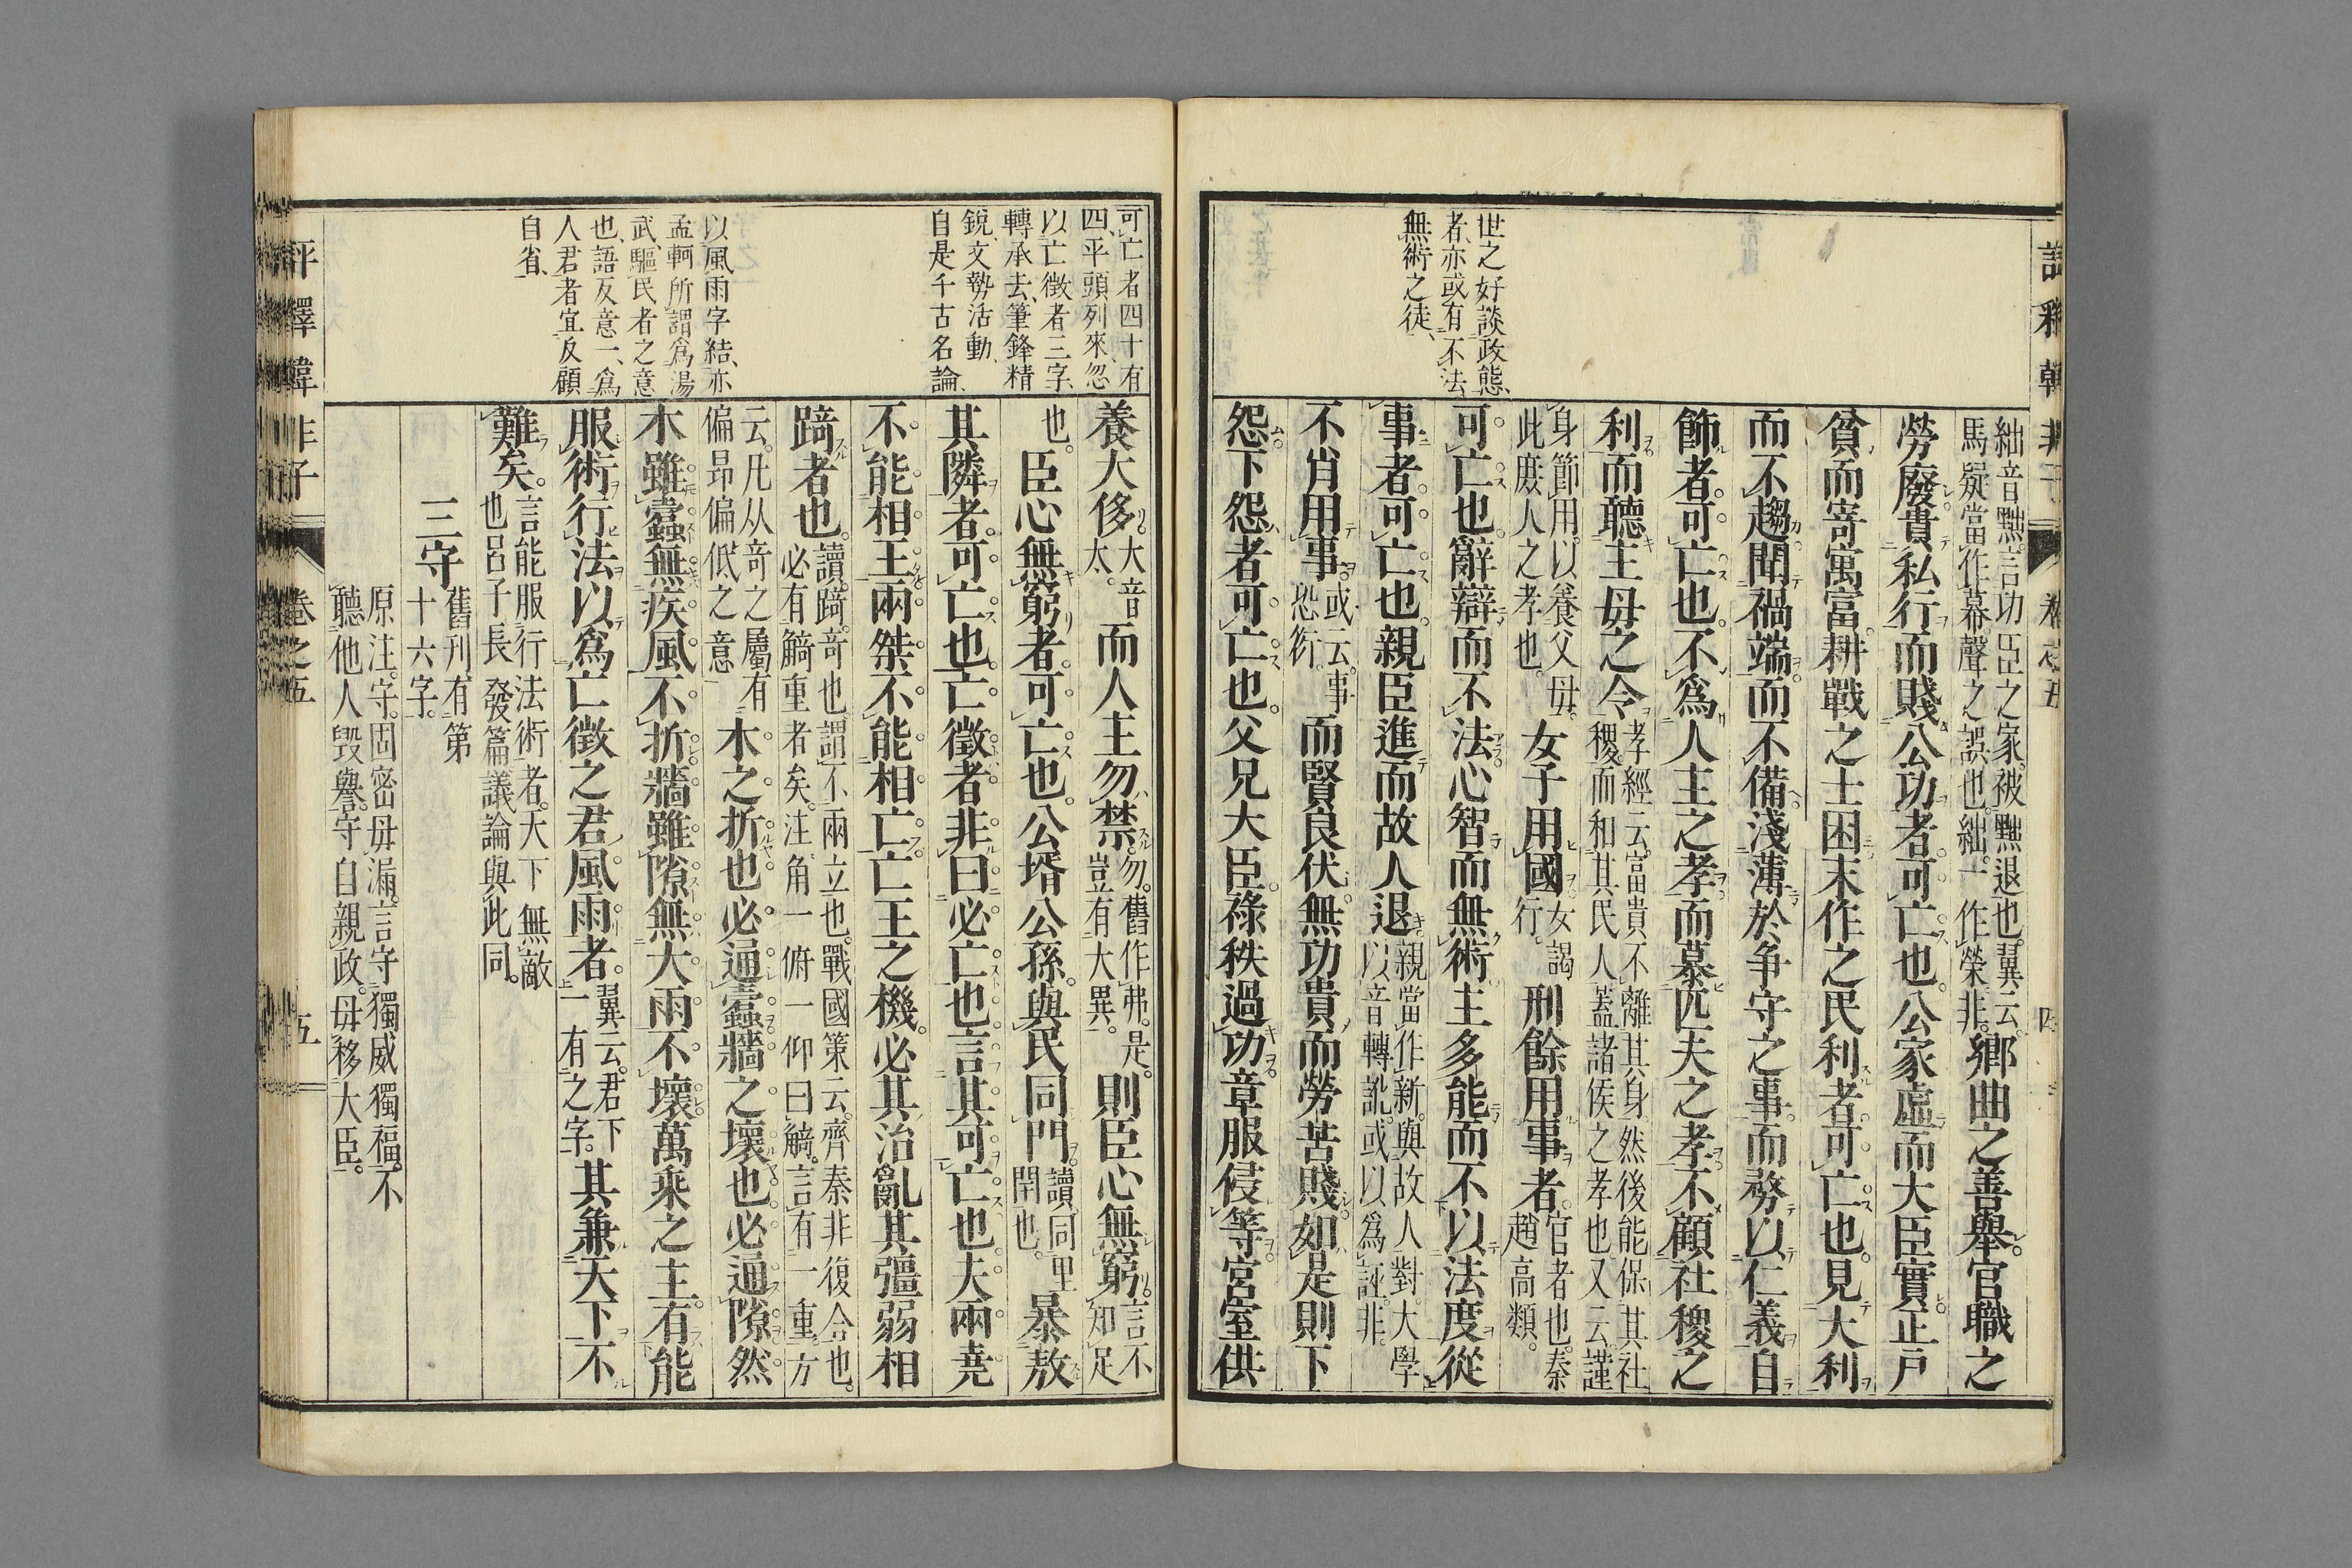 世之好談政態
者亦或有不法
無術之徒
絀音黜。言功臣之家。被黜退也。翼云。
馬疑當作幕聲之誤也。絀一作榮非。
鄉曲之善舉。官職之
勞廢。貴私行而賤公功者。可亡也。公家虛而大臣實。正戶
貧而寄寓富。耕戰之士困。末作之民利者。可亡也。見大利
而不趨。聞禍端而不備。淺薄於争守之事。而務以仁義自
飾者。可亡也。不爲人主之孝。而慕匹夫之孝。不顧社稷之
利。而聽主母之令。
孝經云。富貴不離其身。然後能保其社
稷。而和其民人。蓋諸侯之孝也。又云。謹
身節用。以養父母。
此庶人之孝也。
女子用國。
女謁
行。
刑餘用事者。
官者也。秦
趙高類。
可亡也。辭辯而不法。心智而無術。主多能而不以法度從
事者。可亡也。親臣進而故人退。
親當作新。與故人對。大學
以音轉訛。或以爲誣。非。
不肖用事。
或云。事
恐衍。
而賢良伏。無功貴而勞苦賤。如是則下
怨。下怨者。可亡也。父兄大臣。祿秩過功。章服侵等。宮室供
養大侈。
大音
太。
而人主勿禁。
勿。舊作弗。是。
豈有大異。
則臣心無窮。
言不
知足
也。
臣心無窮者。可亡也。公壻公孫。與民同門。
讀同里
閈也。
暴敖
其隣者。可亡也。亡徵者。非曰必亡也。言其可亡也。夫兩堯
不能相王。兩桀不能相亡。亡王之機。必其治亂其彊弱相
踦者也。
讀踦。竒也。謂不兩立也。戰國策云。齊秦非復合也。
必有觭重者矣。注角一俯一仰曰觭。言有一重。方
云。凡从竒之屬有
偏昻偏低之意
木之折也。必通蠧。牆之壞也。必通隙。然
木雖蠧。無疾風。不折。牆雖隙。無大雨。不壞。萬乘之主。有能
服術行法。以爲亡徵之君風雨者。
翼云。君下
一有之字。
其兼天下不
難矣。
言能服行法術者。天下無敵
也。呂子長發篇議論與此同。
三守
舊刊。有第
十六字。
原注。守。固密毋漏。言守。獨威獨福。不
聽他人毀譽。守。自親政。毋移大臣。
可亡者四十有
四、平頭列來、忽
以亡徵者三字
轉承去、筆鋒精
銳、文勢活動、
自是千古名論、
以風雨字結、亦
孟軻所謂爲湯
武、驅民者之意
也、語反意一、爲
人君者宜反顧
自省、
評釋韓非子
卷之五
五